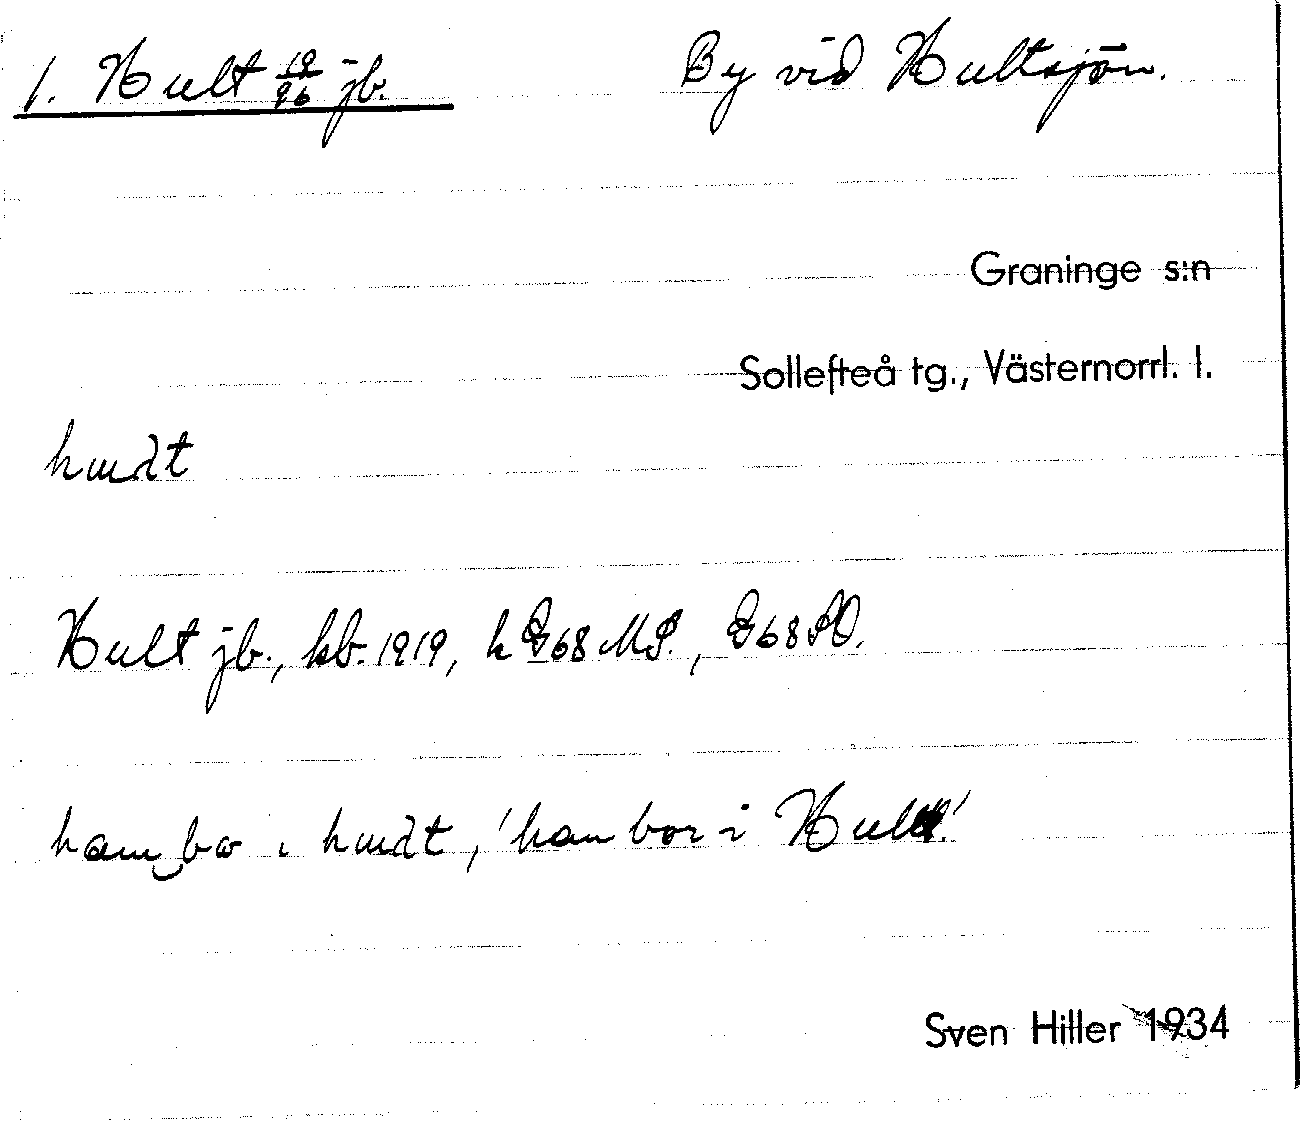 1. Hult 19/96 jb. By vid Hultsjön.
Graninge s:n
Sollefteå tg., Västernorrl. l.
Hult jb., kb. 1919, k
han bo i , 'han bor i Hult.'
Sven Hiller 1934